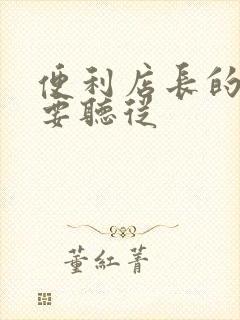 便利店長的
要聽從
董紅菁